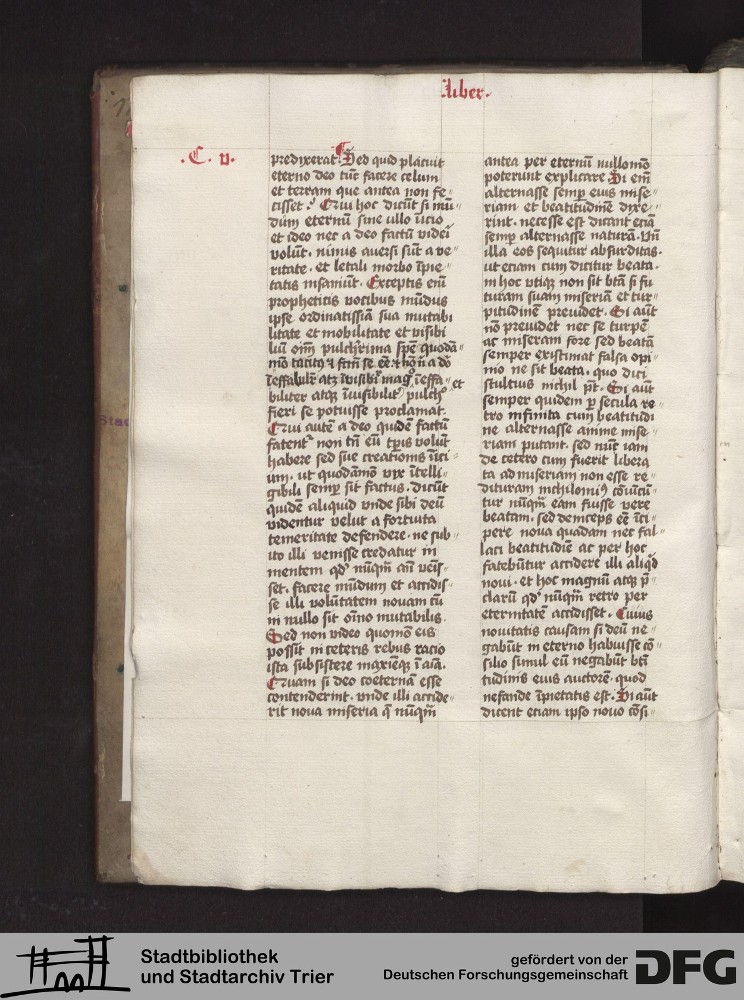 Liber.
.C. v.
predixerat. Sed quid placuit
eterno deo tūc facere celum
et terram que antea non fe〃
cisset. Qui hoc dicūt si mū〃
dum eternū sine ullo īicio
et ideo nec a deo factū videri
volūt. nimis aversi sūt a ve〃
ritate. et letali morbo īpie〃
tatis insaniūt. Exceptis enī
propheticis vocibus mūdus
ipse ordinatissīa sua mutabi
litate et mobilitate et visibi
liū om̄ pulcherrima spē quodā〃
mō tacitꝰ et
ieffabilr̄ atqꝫ īvisibilr̄ mag° ieffa〃 et
biliter atqꝫ īvisibilit᷒ pulch°
fieri se potuisse proclamat.
Qui autē a deo quidē factū
fatent᷒ non tn̄ eū tp̄is volūt
habere sed sue creationis īici
um. ut quodāmō vix ītelli〃
gibili semꝑ sit factus. dicūt
quidē aliquid unde sibi deū
videntur velut a fortuita
temeritate defendere. ne sub〃
ito illi venisse credatur in
mentem qd' nūqm̄ an̄ venis〃
set. facere mūdum et accidis〃
se illi volūtatem novam cū
in nullo sit oīno mutabilis.
Sed non video quomō eis
possit in ceteris rebus racio
ista subsistere maxieqꝫ ī aīa.
Quam si deo coeternā esse
contenderint. unde illi accide〃
rit nova miseria q̄ nūqm̄
antea per eternū nullomō
poterunt explicare. Si enī
alternasse semꝑ eius mise〃
riam et beatitudinē dixe〃
rint. necesse est dicant eciā
semꝑ alternaturā. Vn̄
illa eos sequitur absurditas.
ut eciam cum dicitur beata.
in hoc utiqꝫ non sit bt̄a si fu
turam suam miseriā et tur〃
pitudinē previdet. Si aūt
nō previdet nec se turpē
ac miseram fore sed beatā
semper existimat falsa opi〃
nio ne sit beata. quo dici
stultius nichil pt̄. Si aūt
semper quidem ꝑ secula re〃
tro infinita cum beatitudi
ne alternasse anime mise〃
riam putant. sed nūc iam
de cetero cum fuerit libera
ta ad miseriam non esse re〃
dituram nichilomīꝰ cōvīcū〃
tur nūqm̄ eam fuisse vere
beatam. sed deinceps eē īci〃
pere nova quadam nec fal〃
laci beatitudīe ac per hoc
fatebūtur accidere illi aliqd
novi. et hoc magnū atqꝫ p̄〃
clarū qd' nūqm̄ retro per
eternitatē accidisset. Cuius
novitatis causam si deū ne〃
gabūt in eterno habuisse cō〃
silio simul eū negabūt bt̄i
tudinis eius auctorē. quod
nefande īpietatis est. Si aūt
dicent eciam ipso novo cōsi〃
Stadtbibliothek
und Stadtarchiv Trier
gefördert von der
Deutschen Forschungsgemeinschaft
DFG